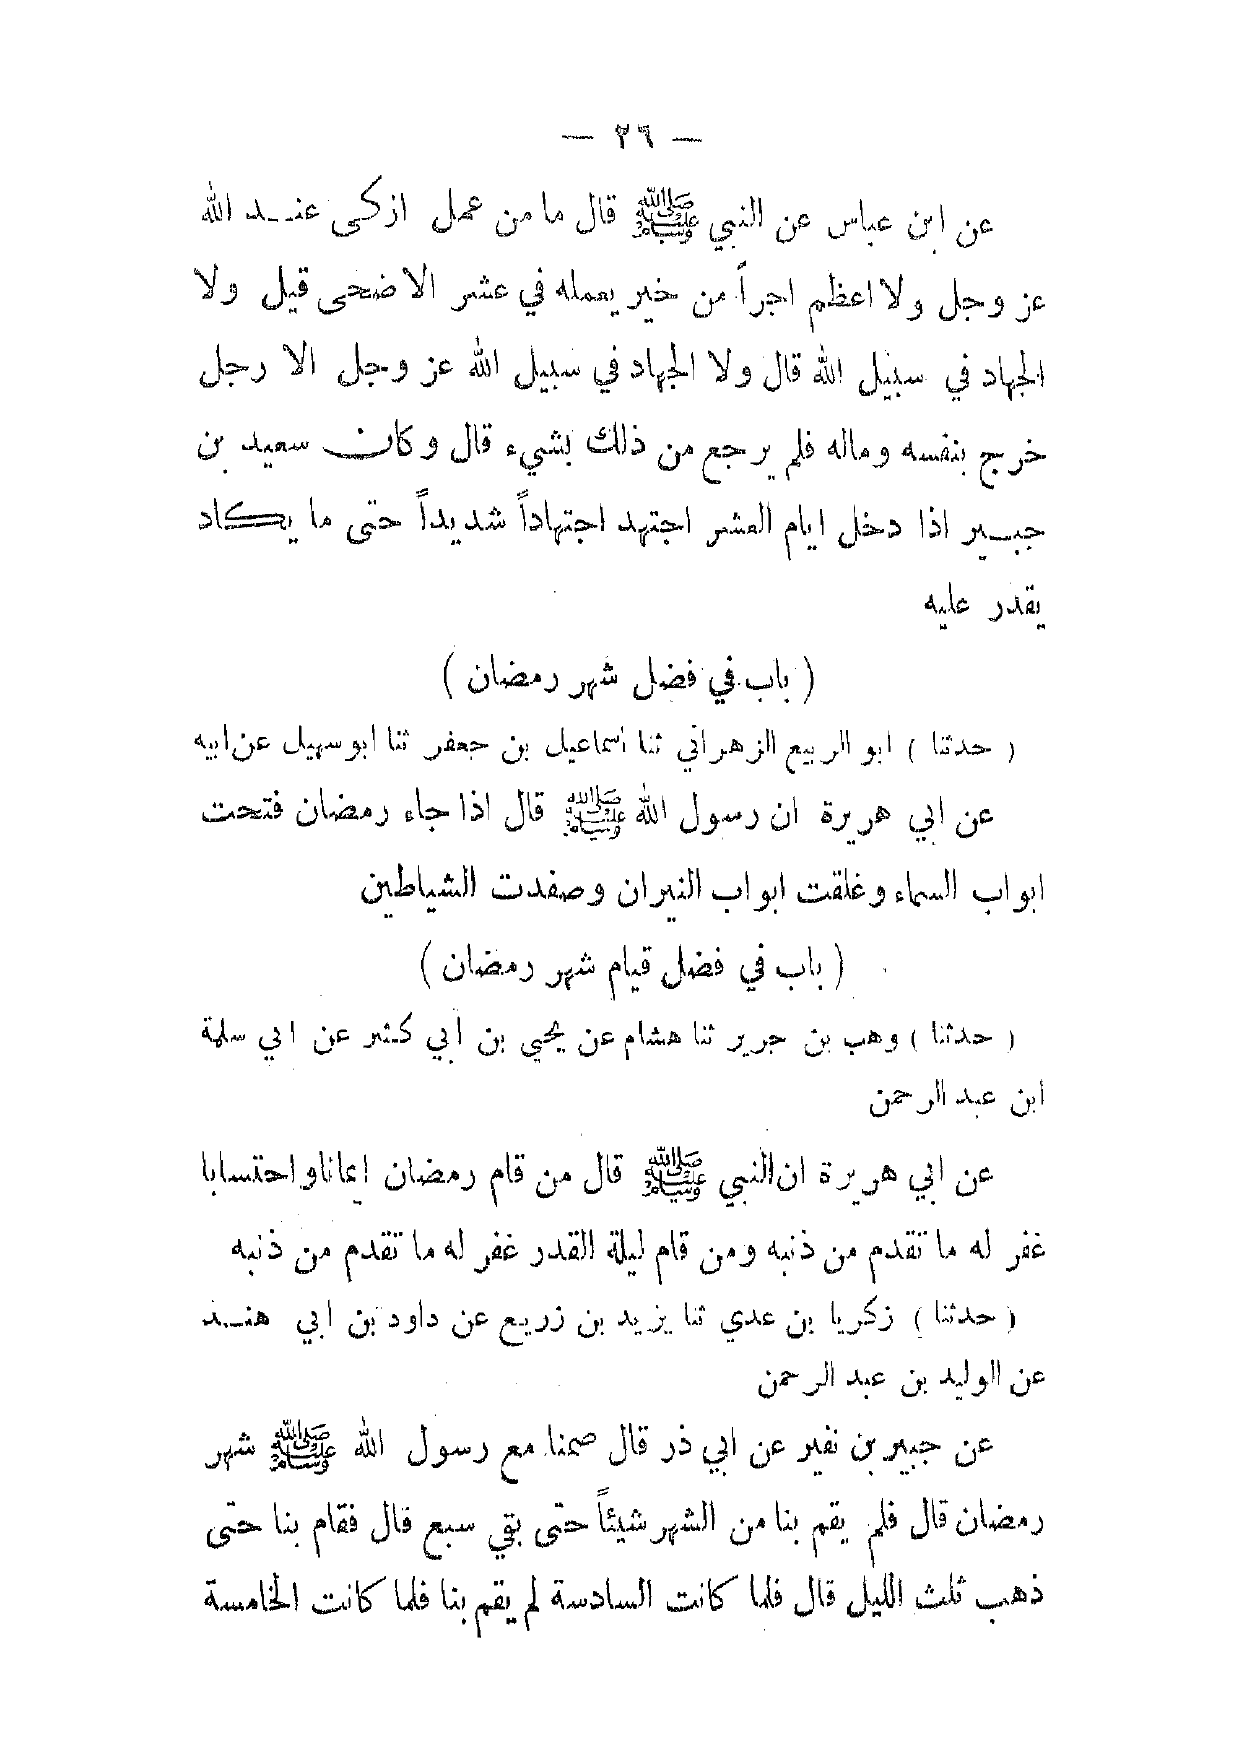 — ٢٦ —
عن ابن عباس عن النبي ﷺ قال ما من عمل ازكى عنـد الله
عز وجل ولا اعظم اجراً من خير يعمله في عشر الاضحى قيل ولا
الجهاد في سبيل الله قال ولا الجهاد في سبيل الله عز وجل الا رجل
خرج بنفسه وماله فلم يرجع من ذلك بشيء قال وكان سعيد بن
جبير اذا دخل ايام العشر اجتهد اجتهاداً شديداً حتى ما يكاد
يقدر عليه
( باب في فضل شهر رمضان )
( حدثنا ) ابو الربيع الزهراني ثنا اسماعيل بن جعفر ثنا ابو سهيل عن ابيه
عن ابي هريرة ان رسول الله ﷺ قال اذا جاء رمضان فتحت
ابواب السماء وغلقت ابواب النيران وصفدت الشياطين
( باب في فضل قيام شهر رمضان )
( حدثنا ) وهب بن جرير ثنا هشام عن يحيي بن أبي كثير عن ابي سلمة
ابن عبد الرحمن
عن ابي هريرة ان النبي ﷺ قال من قام رمضان إيمانا واحتسابا
غفر له ما تقدم من ذنبه ومن قام ليلة القدر غفر له ما تقدم من ذنبه
( حدثنا ) زكريا بن عدي ثنا يزيد بن زريع عن داود بن ابي هنـد
عن الوليد بن عبد الرحمن
عن جبير بن نفير عن ابي ذر قال صمنا مع رسول الله ﷺ شهر
رمضان قال فلم يقم بنا من الشهر شيئاً حتى بقي سبع قال فقام بنا حتى
ذهب ثلث الليل قال فلما كانت السادسة لم يقم بنا فلما كانت الخامسة